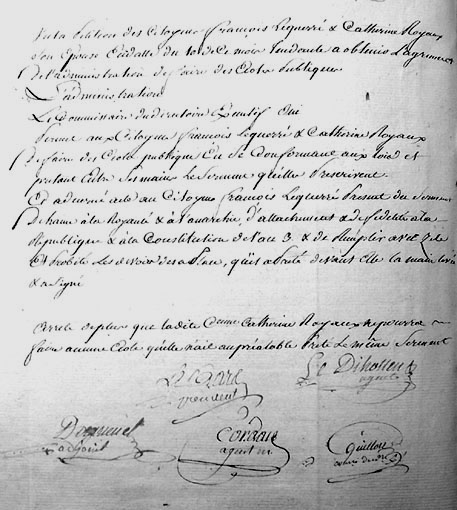 Vu la pétition des Citoyens françois Lequerré & Catherine Royaux
Son Epouse En datte du 10 de ce mois tendante a obtenir L'agrement
de l'administration de faire des Ecoles publiques
L'administration
Le Commissaire du directoire Executif Oui
Permet aux Citoyens françois Lequerré & Catherine Royaux
De faire des Ecoles publiques En se Conformant aux loix et
pretant Entre ses mains Le Serment qu'elles Prescrivent.
Et a donné acte au Citoyen françois Lequerré Present du Serment
De haine a la Royauté & a l'anarchie, d'attachement & de fidelité a la
Republique & a la Constitution de l'an 3 & de Remplir avec Zele
& Probité Les devoirs de sa place, qu'il a Prêté devant Elle la main levée
& a signé
arrete de plus que la dite Cenne Catherine Royaux ne pourra
faire aucune Ecole qu'elle n'ait au préalable Prêté Le même Serment
president
Le Dihollou
agent
adjoint
agent
Guillou